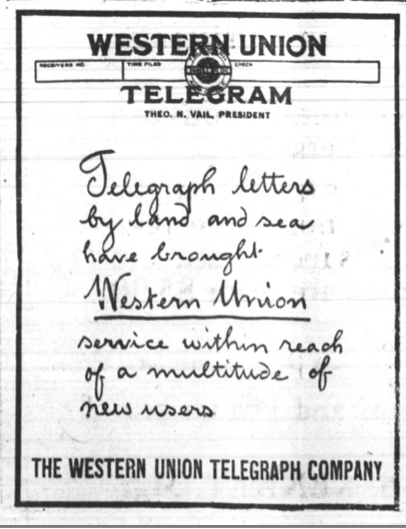 WESTERN UNION
RECEIVERS NO. TIME FILED CHECK
WESTERN UNION
TELEGRAM
THEO. N. VAIL, PRESIDENT
Telegraph letters
by land and sea
have brought
Western Union
service within reach
of a multitude of
new users
THE WESTERN UNION TELEGRAPH COMPANY